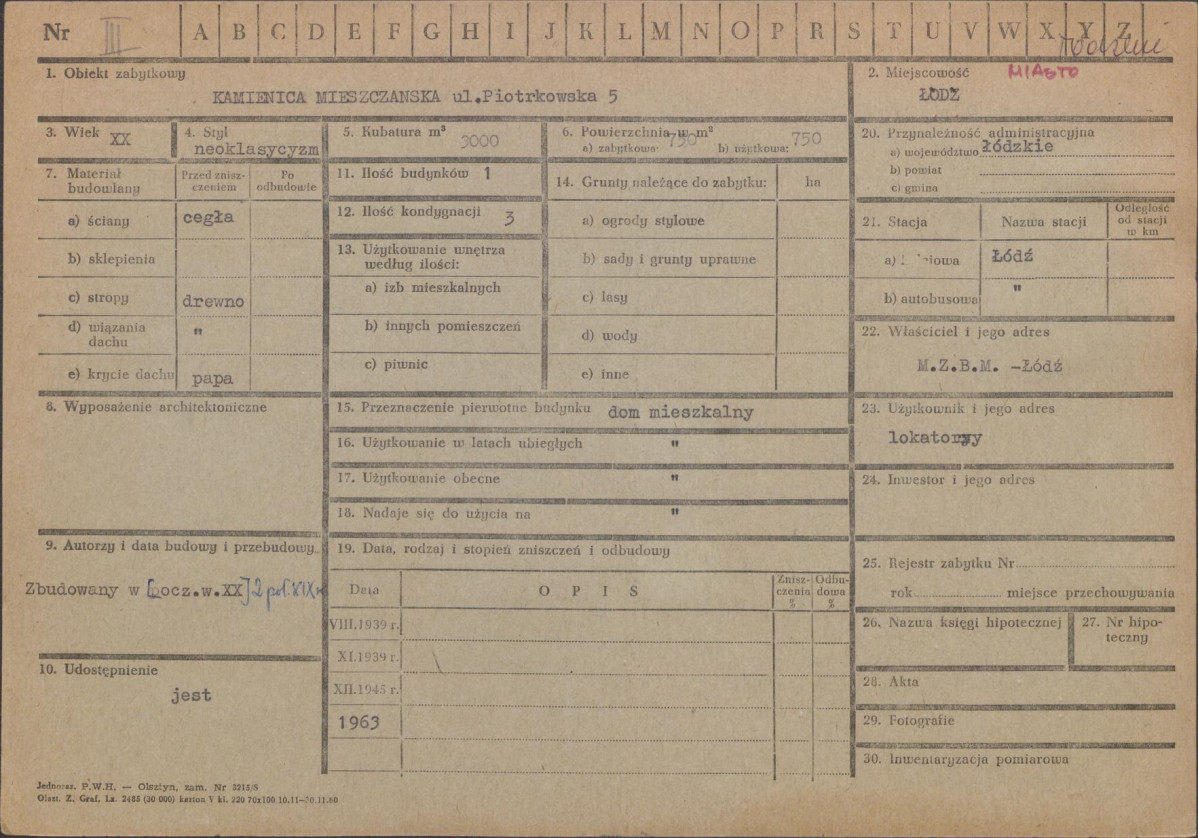 Nr III A B C D E F G H I J K L M N O P R S T U V W X Y Z
1. Obiekt zabytkowy
KAMIENICA MIESZCZANSKA ul.Piotrkowska 5
2. Miejscowość MIASTO
ŁODZ
3. Wiek XX
4. Styl
neoklasycyzm
5. Kubatura m³ 3000
6. Powierzchnia w m²
a) zabytkowa: 750 b) użytkowa: 750
7. Materiał budowlany
Przed zniszczeniem
Po odbudowie
a) ściany cegła
b) sklepienia
c) stropy drewno
d) wiązania dachu "
e) krycie dachu papa
8. Wyposażenie architektoniczne
9. Autorzy i data budowy i przebudowy
Zbudowany w [pocz.w.XX] 2 poł. XIX w
10. Udostępnienie
jest
11. Ilość budynków 1
12. Ilość kondygnacji 3
13. Użytkowanie wnętrza
według ilości:
a) izb mieszkalnych
b) innych pomieszczeń
c) piwnic
14. Grunty należące do zabytku: ha
a) ogrody stylowe
b) sady i grunty uprawne
c) lasy
d) wody
e) inne
15. Przeznaczenie pierwotne budynku dom mieszkalny
16. Użytkowanie w latach ubiegłych "
17. Użytkowanie obecne "
18. Nadaje się do użycia na "
19. Data, rodzaj i stopień zniszczeń i odbudowy
Data O P I S Zniszczenia % Odbudowa %
VIII.1939 r.
XI.1939 r.
XII.1945 r.
1963
20. Przynależność administracyjna
a) województwo łódzkie
b) powiat
c) gmina
21. Stacja Nazwa stacji Odległość od stacji w km
a) Łódź
b) autobusowa "
22. Właściciel i jego adres
M.Z.B.M. -Łódź
23. Użytkownik i jego adres
lokatorzy
24. Inwestor i jego adres
25. Rejestr zabytku Nr
rok miejsce przechowywania
26. Nazwa księgi hipotecznej
27. Nr hipoteczny
28. Akta
29. Fotografie
30. Inwentaryzacja pomiarowa
Jednoraz. P.W.H. — Olsztyn, zam. Nr 3215/S
Olszt. Z. Graf. Lz. 2485 (20 000) karton V kl. 220 70x100 10.11—30.11.60